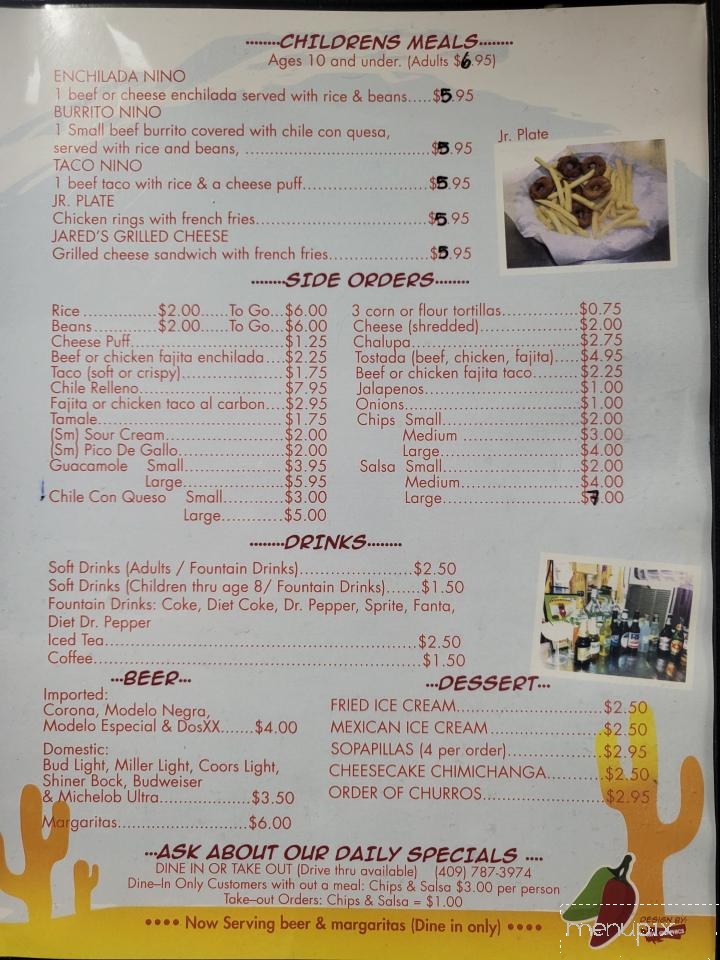 ........CHILDRENS MEALS........
Ages 10 and under. (Adults $6.95)
ENCHILADA NINO
1 beef or cheese enchilada served with rice & beans.....$5.95
BURRITO NINO
1 Small beef burrito covered with chile con quesa,
served with rice and beans, ................................$5.95
TACO NINO
1 beef taco with rice & a cheese puff......................$5.95
JR. PLATE
Chicken rings with french fries................................$5.95
JARED'S GRILLED CHEESE
Grilled cheese sandwich with french fries...................$5.95
Jr. Plate
........SIDE ORDERS........
Rice ...............$2.00......To Go...$6.00
Beans.............$2.00......To Go...$6.00
Cheese Puff..............................$1.25
Beef or chicken fajita enchilada....$2.25
Taco (soft or crispy)....................$1.75
Chile Relleno............................$7.95
Fajita or chicken taco al carbon....$2.95
Tamale....................................$1.75
(Sm) Sour Cream.......................$2.00
(Sm) Pico De Gallo....................$2.00
Guacamole Small....................$3.95
Large....................$5.95
Chile Con Queso Small............$3.00
Large............$5.00
3 corn or flour tortillas...............$0.75
Cheese (shredded)....................$2.00
Chalupa.................................$2.75
Tostada (beef, chicken, fajita).....$4.95
Beef or chicken fajita taco.........$2.25
Jalapenos...............................$1.00
Onions..................................$1.00
Chips Small...........................$2.00
Medium .......................$3.00
Large...........................$4.00
Salsa Small...........................$2.00
Medium.......................$4.00
Large...........................$7.00
........DRINKS........
Soft Drinks (Adults / Fountain Drinks).........................$2.50
Soft Drinks (Children thru age 8/ Fountain Drinks).......$1.50
Fountain Drinks: Coke, Diet Coke, Dr. Pepper, Sprite, Fanta,
Diet Dr. Pepper
Iced Tea.........................................................$2.50
Coffee............................................................$1.50
...BEER...
Imported:
Corona, Modelo Negra,
Modelo Especial & DosXX.......$4.00
Domestic:
Bud Light, Miller Light, Coors Light,
Shiner Bock, Budweiser
& Michelob Ultra.....................$3.50
Margaritas.........................$6.00
...DESSERT...
FRIED ICE CREAM.........................$2.50
MEXICAN ICE CREAM...................$2.50
SOPAPILLAS (4 per order)...............$2.95
CHEESECAKE CHIMICHANGA..........$2.50
ORDER OF CHURROS....................$2.95
...ASK ABOUT OUR DAILY SPECIALS ....
DINE IN OR TAKE OUT (Drive thru available) (409) 787-3974
Dine–In Only Customers with out a meal: Chips & Salsa $3.00 per person
Take–out Orders: Chips & Salsa = $1.00
•••• Now Serving beer & margaritas (Dine in only) ••••
DESIGN BY:
menupix